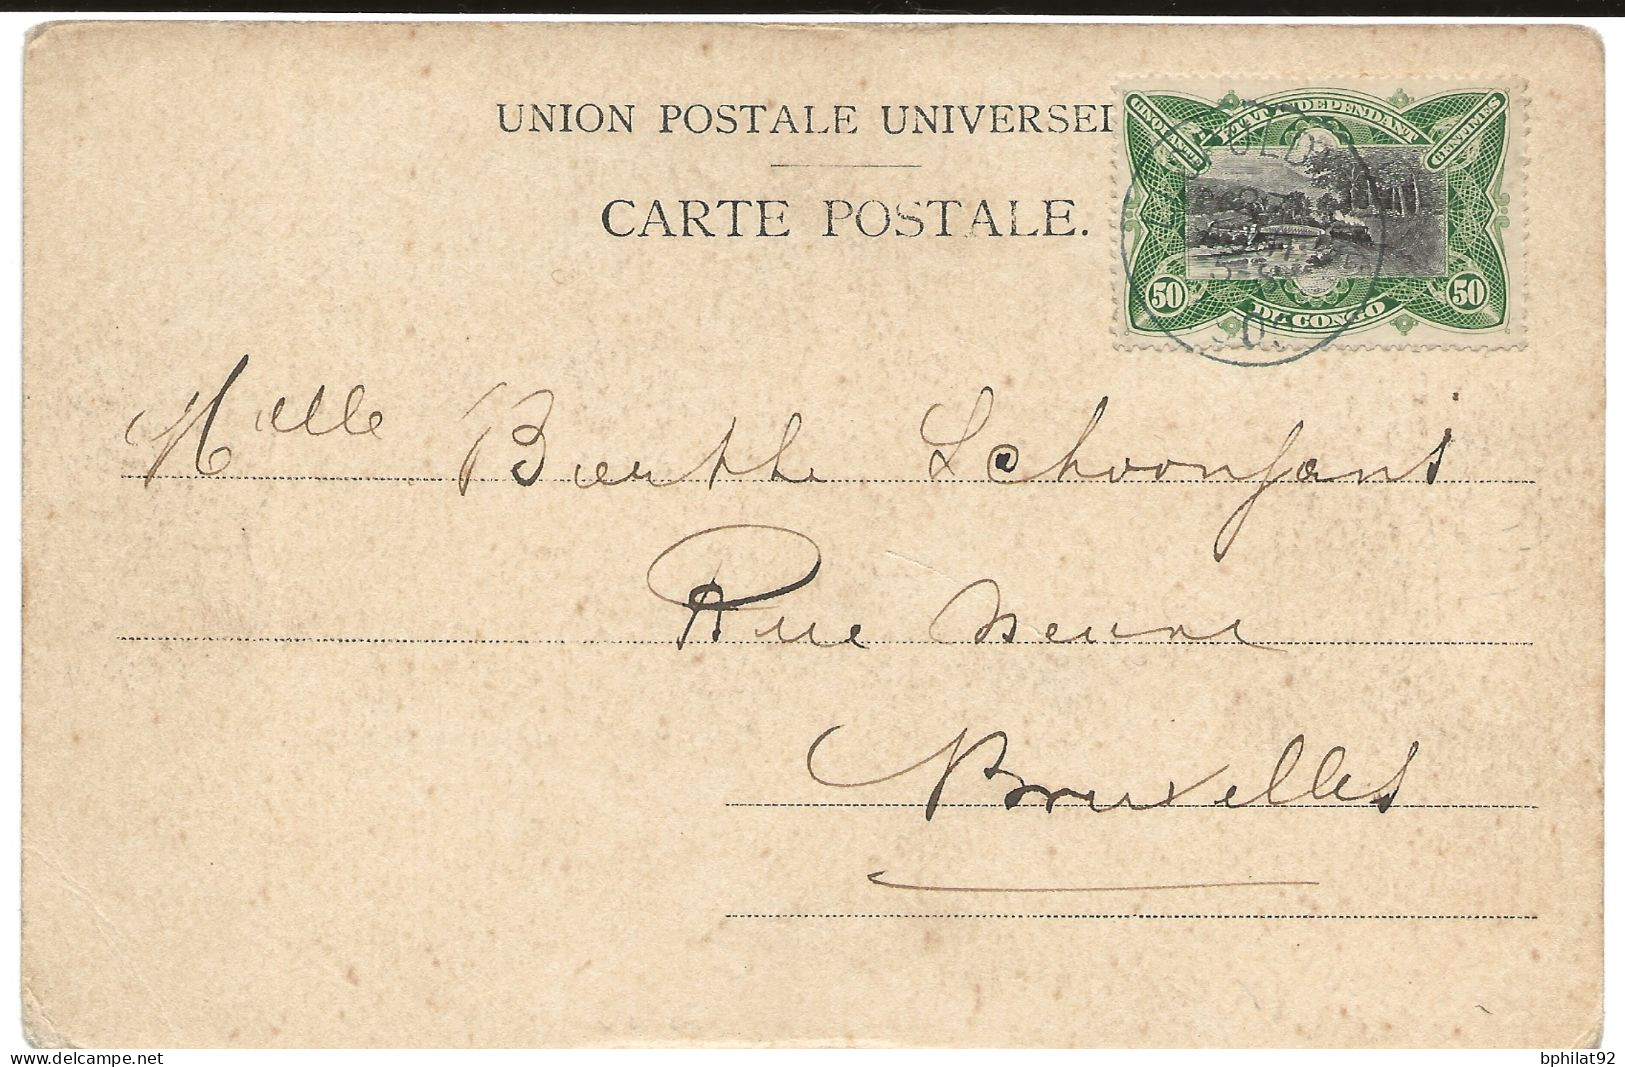 UNION POSTALE UNIVERSEL
CARTE POSTALE.
ETAT INDEPENDANT
CINQUANTE
CENTIMES
50
50
DU CONGO
Mlle Berthe Schoonjans
Rue Neuve
Bruxelles
delcampe.net
bphilat92